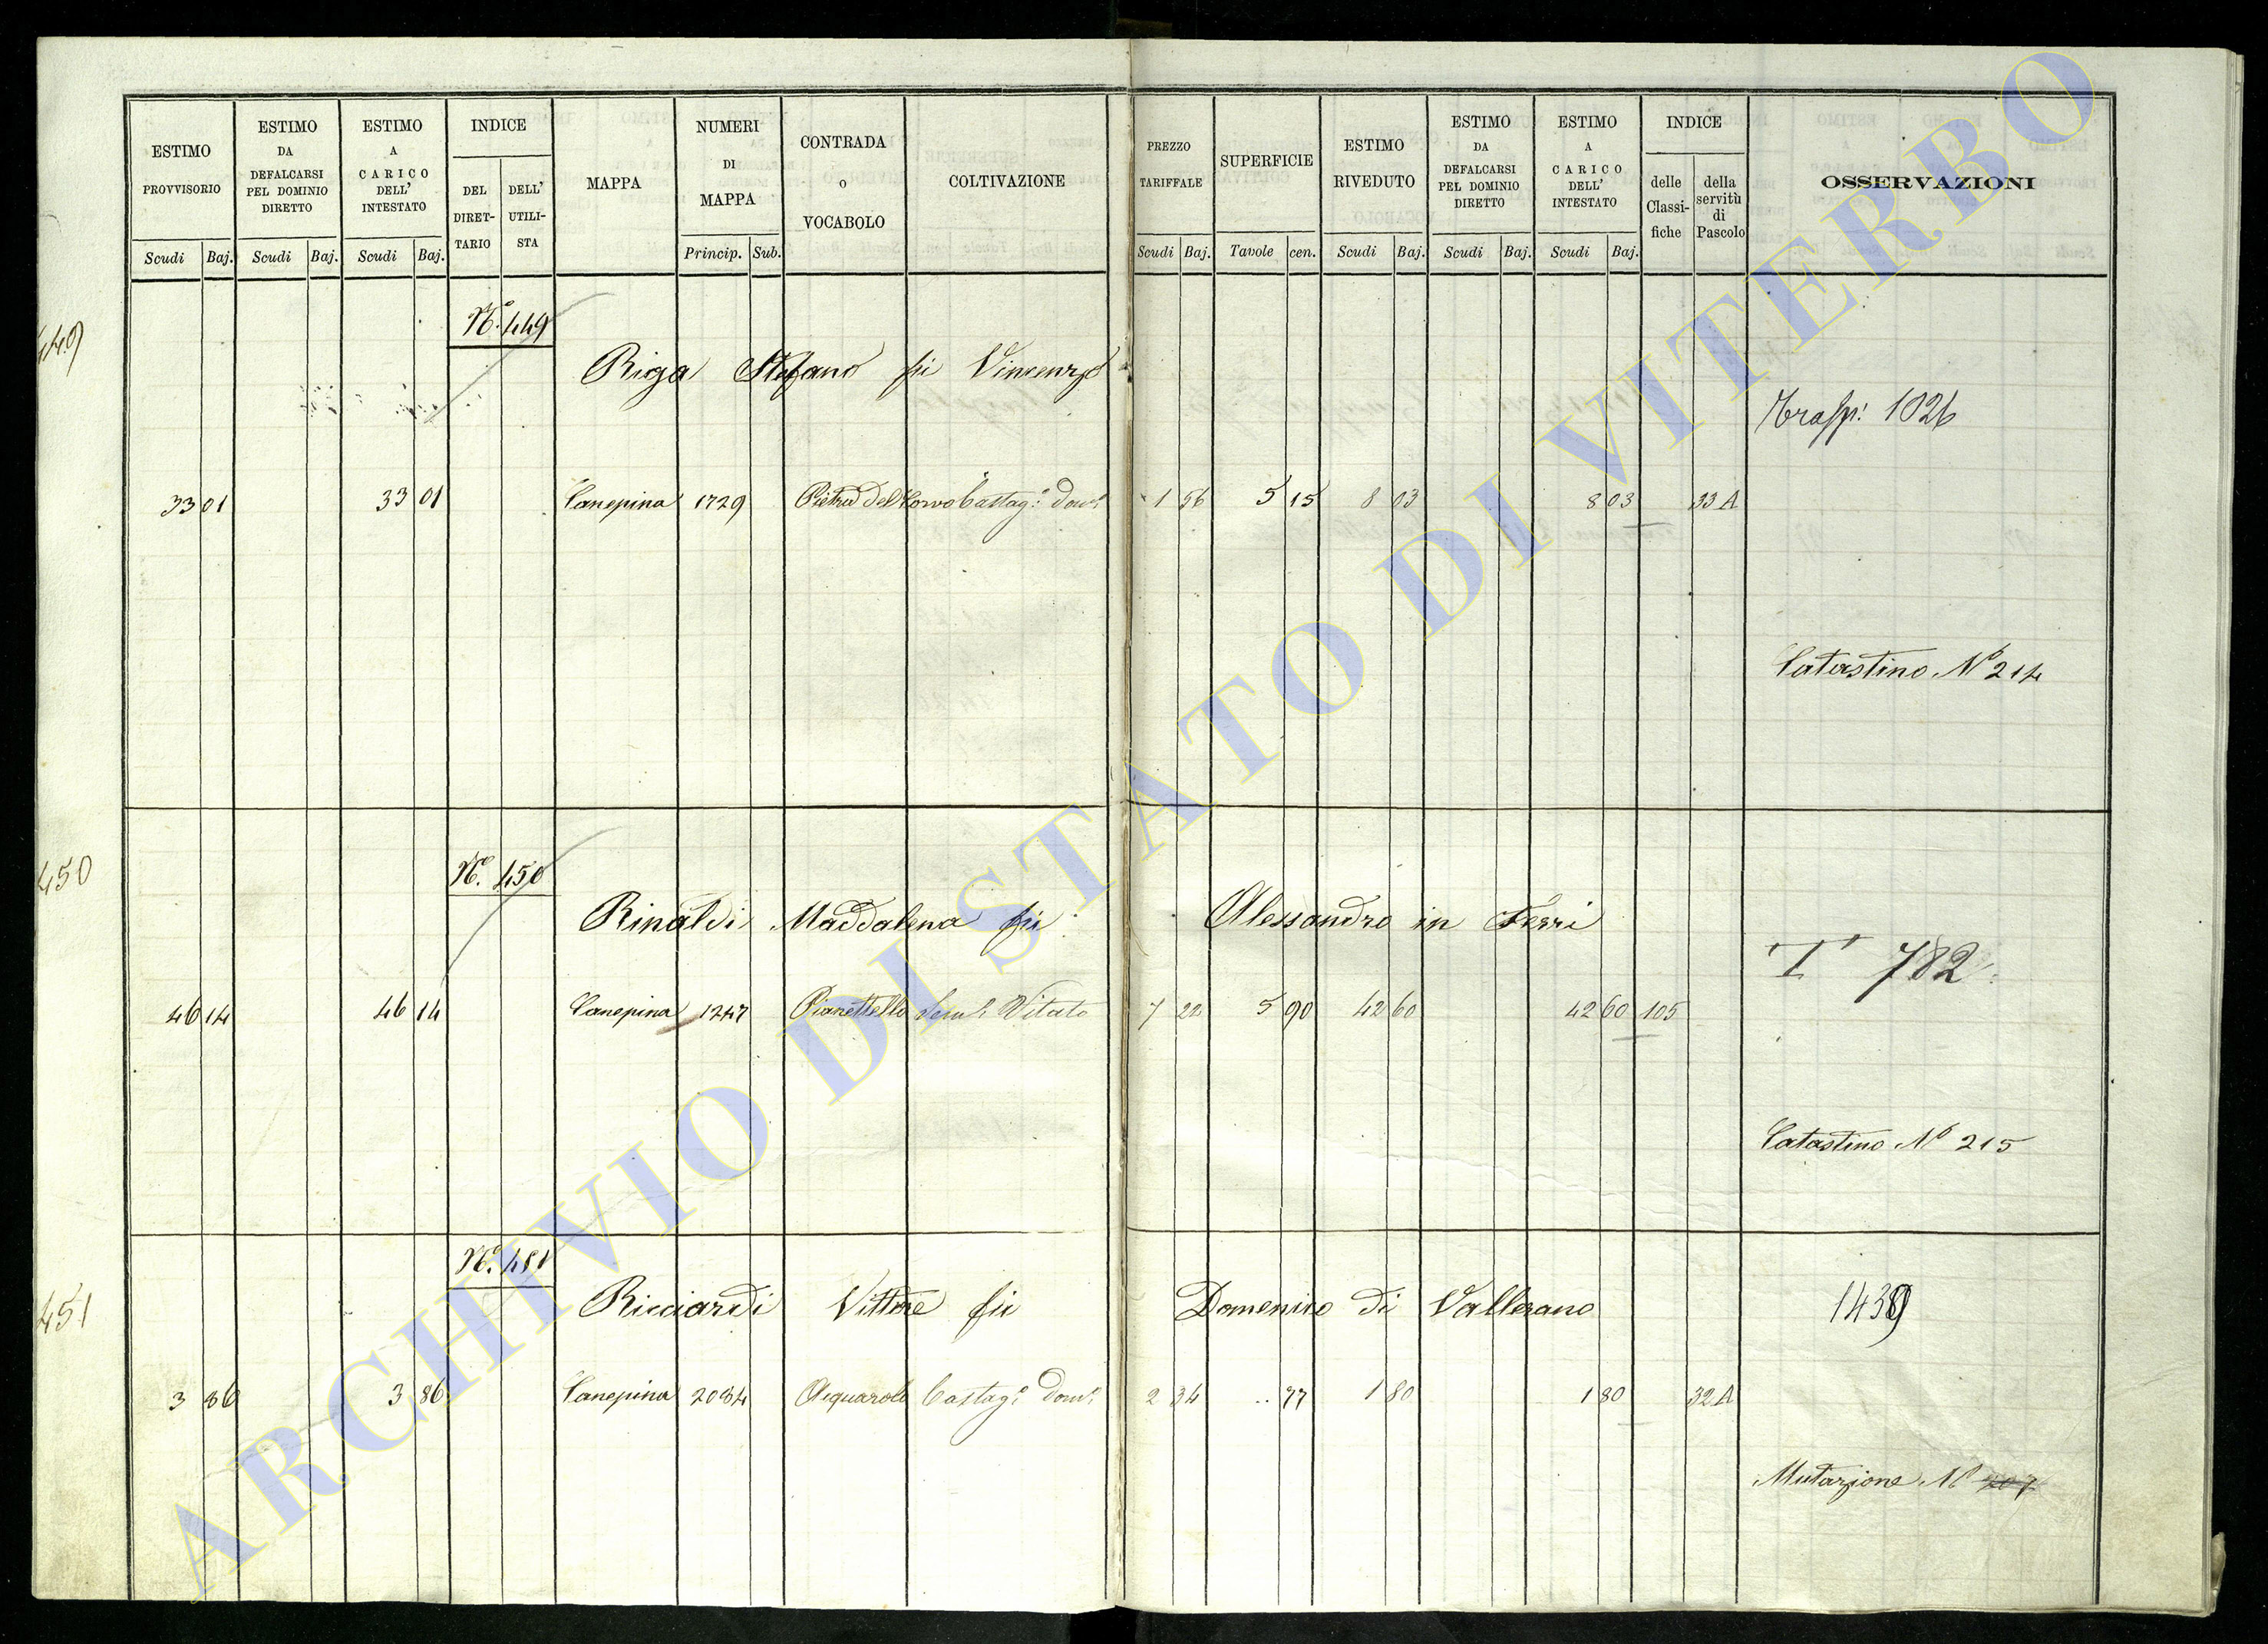 ESTIMO PROVVISORIO Scudi Baj.
ESTIMO DA DEFALCARSI PEL DOMINIO DIRETTO Scudi Baj.
ESTIMO A CARICO DELL' INTESTATO Scudi Baj.
INDICE DEL DIRETTARIO DELL' UTILISTA
MAPPA
NUMERI DI MAPPA Princip. Sub.
CONTRADA o VOCABOLO
COLTIVAZIONE
PREZZO TARIFFALE Scudi Baj.
SUPERFICIE Tavole cen.
ESTIMO RIVEDUTO Scudi Baj.
ESTIMO DA DEFALCARSI PEL DOMINIO DIRETTO Scudi Baj.
ESTIMO A CARICO DELL' INTESTATO Scudi Baj.
INDICE delle Classifiche della servitù di Pascolo
OSSERVAZIONI
449
N.º 449
Riga Stefano fù Vincenzo
Trasp: 1026
33 01 33 01 Canepina 1729 Pietra del Corvo Castag.º Dom.º 1 56 5 15 8 03 8 03 33 A
Catastino Nº 214
450
N.º 450
Rinaldi Maddalena fù Alessandro in Ferri
T 782
46 14 46 14 Canepina 1247 Pianettello Sem.º Vitato 7 22 5 90 42 60 42 60 105
Catastino Nº 215
451
N.º 451
Ricciardi Vittore fù Domenico di Vallerano
1439
3 86 3 86 Canepina 2084 Acquarole Castag.º Dom.º 2 34 .. 77 1 80 1 80 32 A
Mutazione Nº
ARCHIVIO DI STATO DI VITERBO